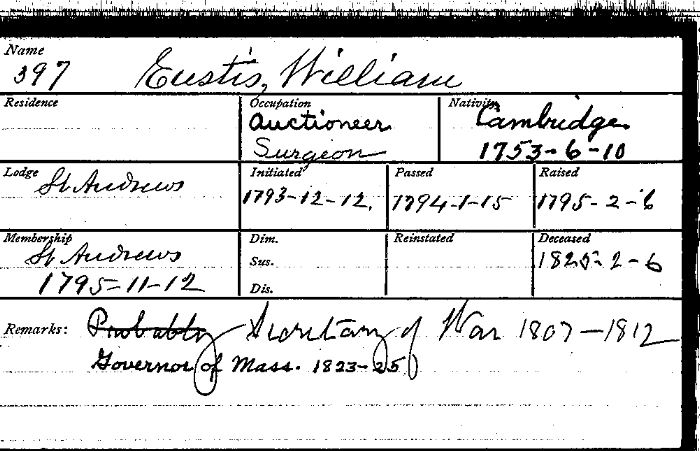 Name
397 Eustis, William
Residence
Occupation
Auctioneer
Surgeon
Nativity
Cambridge
1753-6-10
Lodge
St Andrews
Initiated
1793-12-12.
Passed
1794-1-15
Raised
1795-2-6
Membership
St Andrews
1795-11-12
Dim.
Sus.
Dis.
Reinstated
Deceased
1825-2-6
Remarks: Probably Secretary of War 1807-1812
Governor of Mass. 1823-25